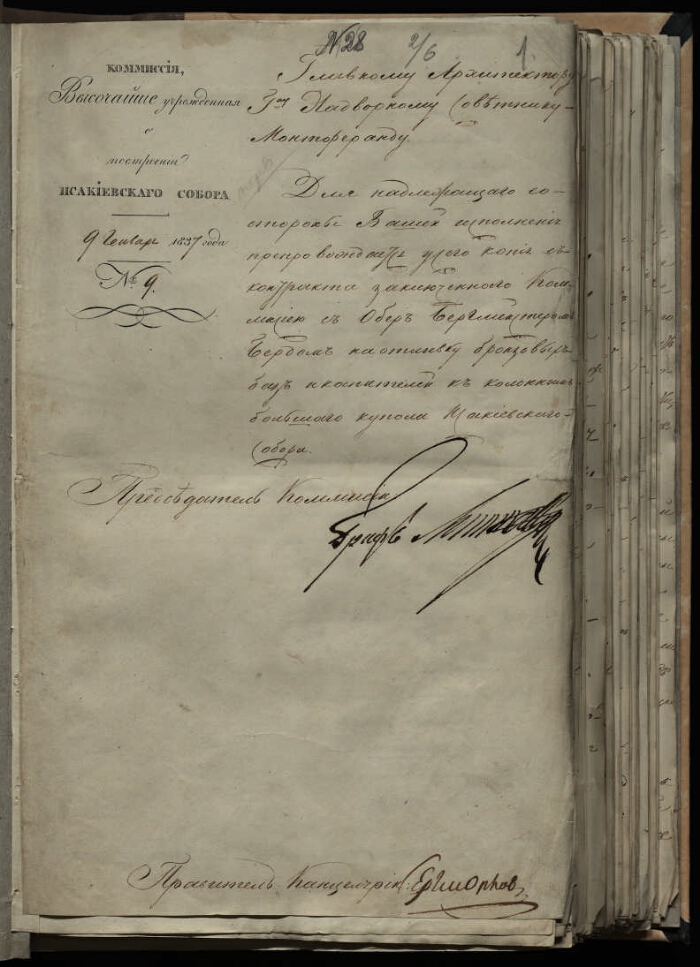 № 28
2/6
1.
КОММИССІЯ,
Высочайше учрежденная
о
построеніи
ИСАКІЕВСКАГО СОБОРА
9 Генваря 1837 года
№ 9.
Главному Архитектору
Г-ну Надворному Совѣтнику
Монтферанду.
Для надлежащаго со
стороны Вашей исполненія
препровождается у сего копія съ
контракта заключеннаго Ком-
мисіею съ Оберъ Бергмейстеромъ
Бердомъ на отливку бронзовыхъ
базъ и капителей къ колоннамъ
большаго купола Исакіевскаго
Собора.
Предсѣдатель Коммисіи
Графъ
Правитель Канцеляріи: